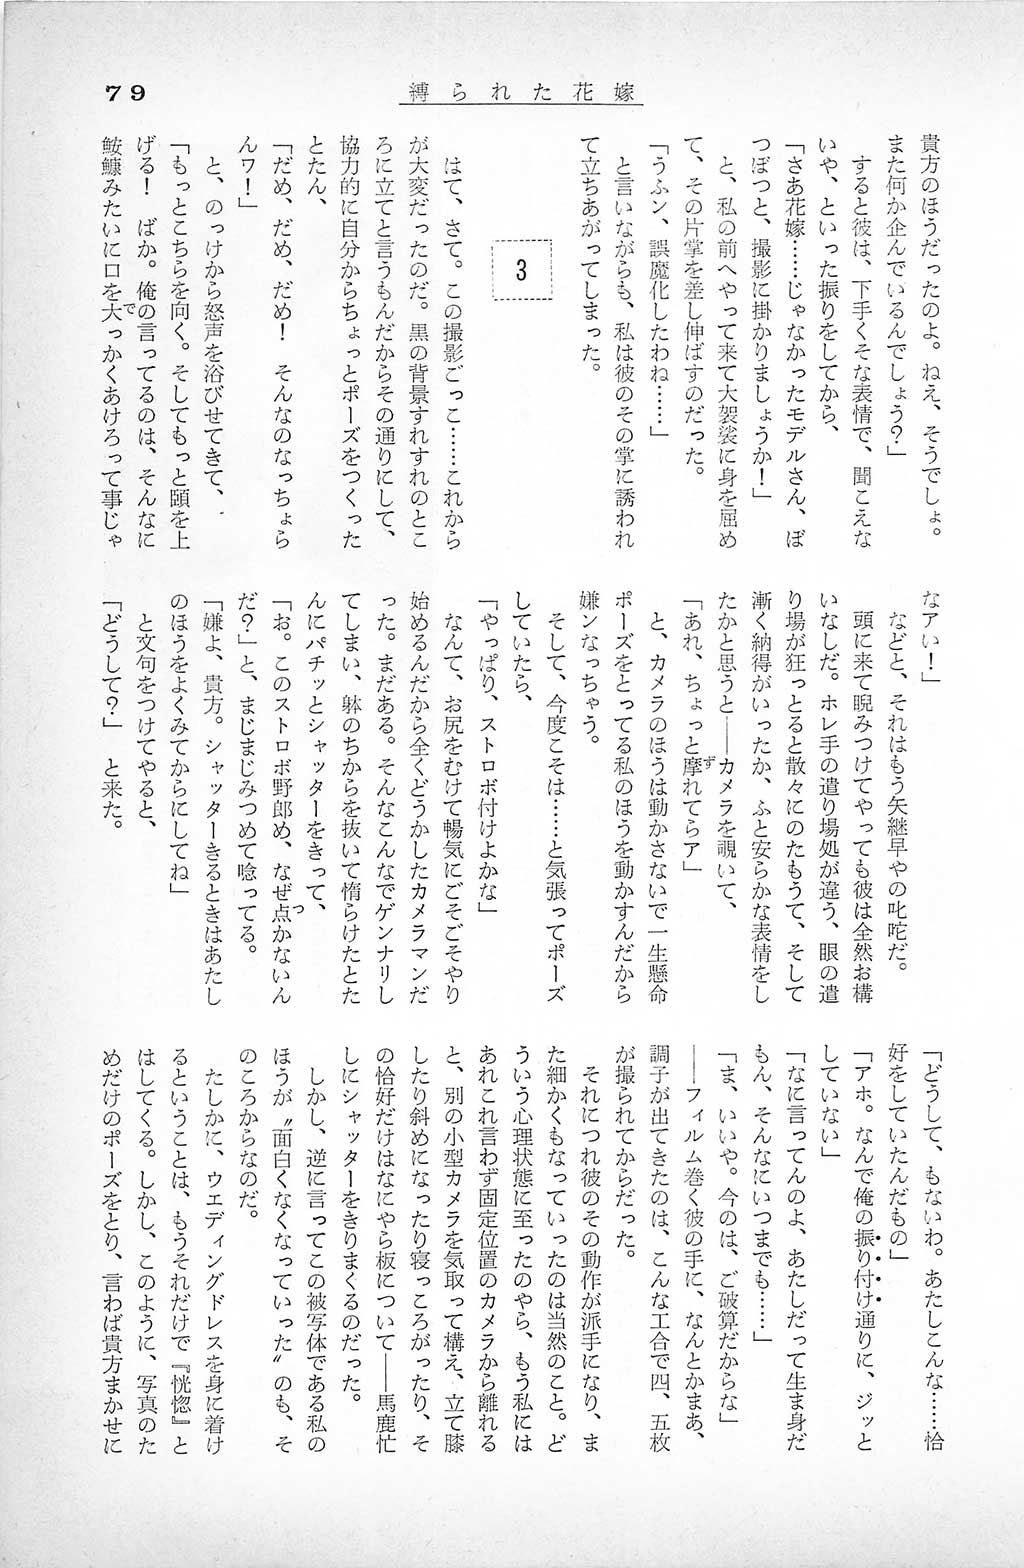 79
縛られた花嫁
貴方のほうだったのよ。ねえ、そうでしょ。
また何か企んでいるんでしょう?」
すると彼は、下手くそな表情で、聞こえな
いや、といった振りをしてから、
「さあ花嫁……じゃなかったモデルさん、ぼ
つぼつと、撮影に掛かりましょうか!」
と、私の前へやって来て大袈裟に身を屈め
て、その片掌を差し伸ばすのだった。
「うふン、誤魔化したわね……」
と言いながらも、私は彼のその掌に誘われ
て立ちあがってしまった。
3
はて、さて。この撮影ごっこ……これから
が大変だったのだ。黒の背景すれすれのとこ
ろに立てと言うもんだからその通りにして、
協力的に自分からちょっとポーズをつくった
とたん、
「だめ、だめ、だめ! そんなのなっちょら
んワ!」
と、のっけから怒声を浴びせてきて、
「もっとこちらを向く。そしてもっと頤を上
げる! ばか。俺の言ってるのは、そんなに
鮟鱇みたいに口を大っかくあけろって事じゃ
なアい!」
などと、それはもう矢継早やの叱咤だ。
頭に来て睨みつけてやっても彼は全然お構
いなしだ。ホレ手の遣り場処が違う、眼の遣
り場が狂っとると散々にのたもうて、そして
漸く納得がいったか、ふと安らかな表情をし
たかと思うと――カメラを覗いて、
「あれ、ちょっと摩れてらア」
と、カメラのほうは動かさないで一生懸命
ポーズをとってる私のほうを動かすんだから
嫌ンなっちゃう。
そして、今度こそは……と気張ってポーズ
していたら、
「やっぱり、ストロボ付けよかな」
なんて、お尻をむけて暢気にごそごそやり
始めるんだから全くどうかしたカメラマンだ
った。まだある。そんなこんなでゲンナリし
てしまい、躰のちからを抜いて惰らけたとた
んにパチッとシャッターをきって、
「お。このストロボ野郎め、なぜ点かないん
だ?」と、まじまじみつめて唸ってる。
「嫌よ、貴方。シャッターきるときはあたし
のほうをよくみてからにしてね」
と文句をつけてやると、
「どうして?」 と来た。
「どうして、もないわ。あたしこんな……恰
好をしていたんだもの」
「アホ。なんで俺の振り付け通りに、ジッと
していない」
「なに言ってんのよ、あたしだって生ま身だ
もん、そんなにいつまでも……」
「ま、いいや。今のは、ご破算だからな」
――フィルム巻く彼の手に、なんとかまあ、
調子が出てきたのは、こんな工合で四、五枚
が撮られてからだった。
それにつれ彼のその動作が派手になり、ま
た細かくもなっていったのは当然のこと。ど
ういう心理状態に至ったのやら、もう私には
あれこれ言わず固定位置のカメラから離れる
と、別の小型カメラを気取って構え、立て膝
したり斜めになったり寝っころがったり、そ
の恰好だけはなにやら板について――馬鹿忙
しにシャッターをきりまくるのだった。
しかし、逆に言ってこの被写体である私の
ほうが〝面白くなくなっていった〟のも、そ
のころからなのだ。
たしかに、ウエディングドレスを身に着け
るということは、もうそれだけで『恍惚』と
はしてくる。しかし、このように、写真のた
めだけのポーズをとり、言わば貴方まかせに